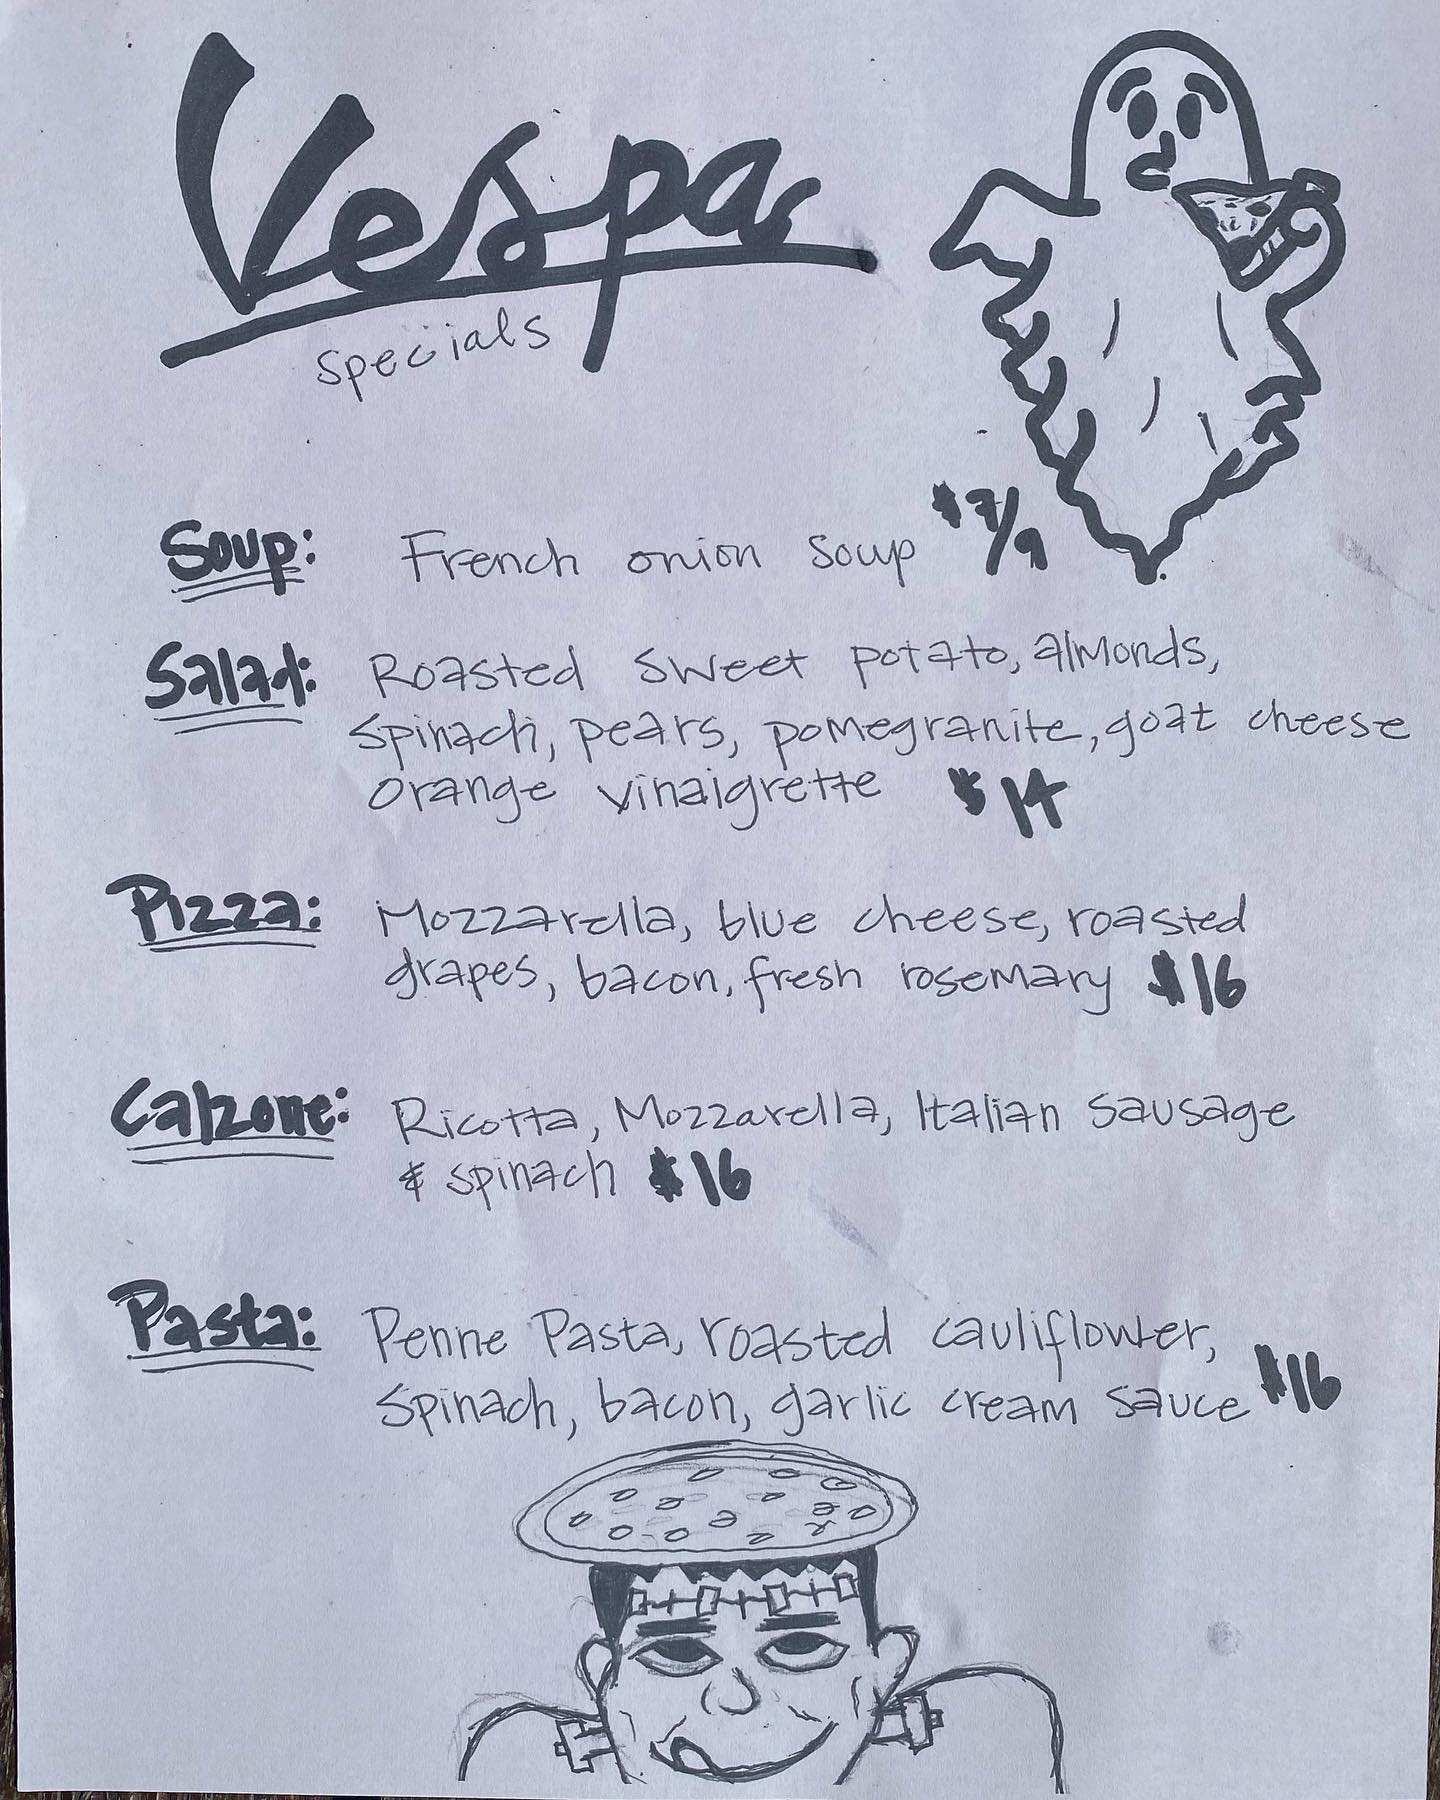 Vespa
specials
Soup: French onion soup $7/9
Salad: Roasted sweet potato, almonds,
spinach, pears, pomegranite, goat cheese
orange vinaigrette $14
Pizza: Mozzarella, blue cheese, roasted
grapes, bacon, fresh rosemary $16
Calzone: Ricotta, Mozzarella, Italian sausage
& spinach $16
Pasta: Penne Pasta, roasted cauliflower,
spinach, bacon, garlic cream sauce $16